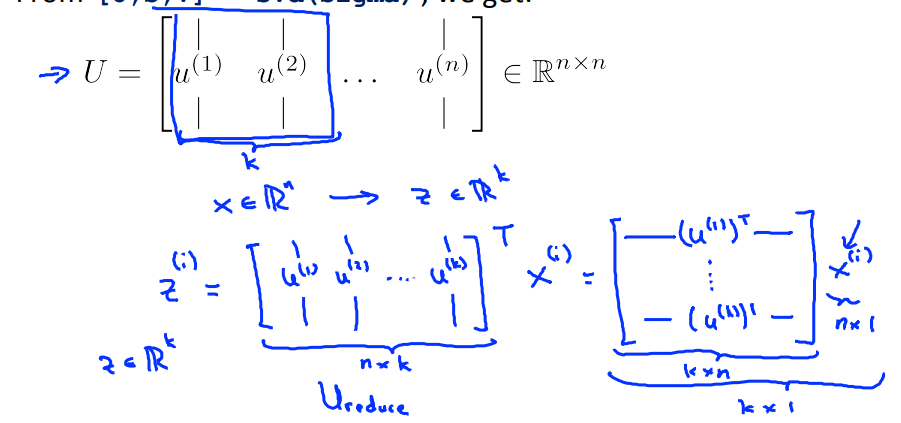 From [U,S,V] = svd(Sigma), we get:
→ U = [ u^(1) u^(2) … u^(n) ] ∈ ℝ^{n×n}
k
x ∈ ℝ^n → z ∈ ℝ^k
z^(i) = [ u^(1) u^(2) … u^(k) ]^T x^(i) = [ (u^(1))^T ⋮ (u^(k))^T ] x^(i)
n×1
z ∈ ℝ^k
n×k
k×n
Ureduce
k×1